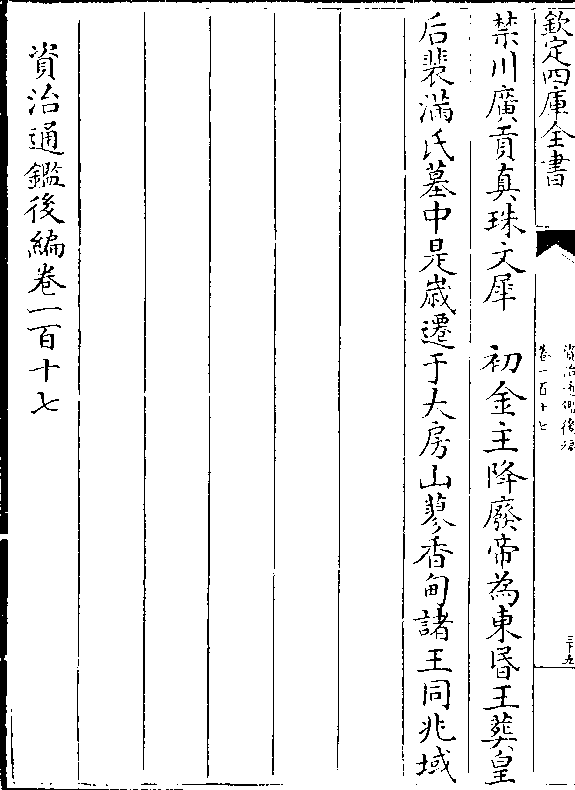 欽定四庫全書
資治通鑑後編
卷一百十七
三十九
禁川廣貢真珠文犀　初金主降廢帝為東昬王葬皇
后裴滿氏墓中是歲遷于大房山蓼香甸諸王同兆域
資治通鑑後編卷一百十七